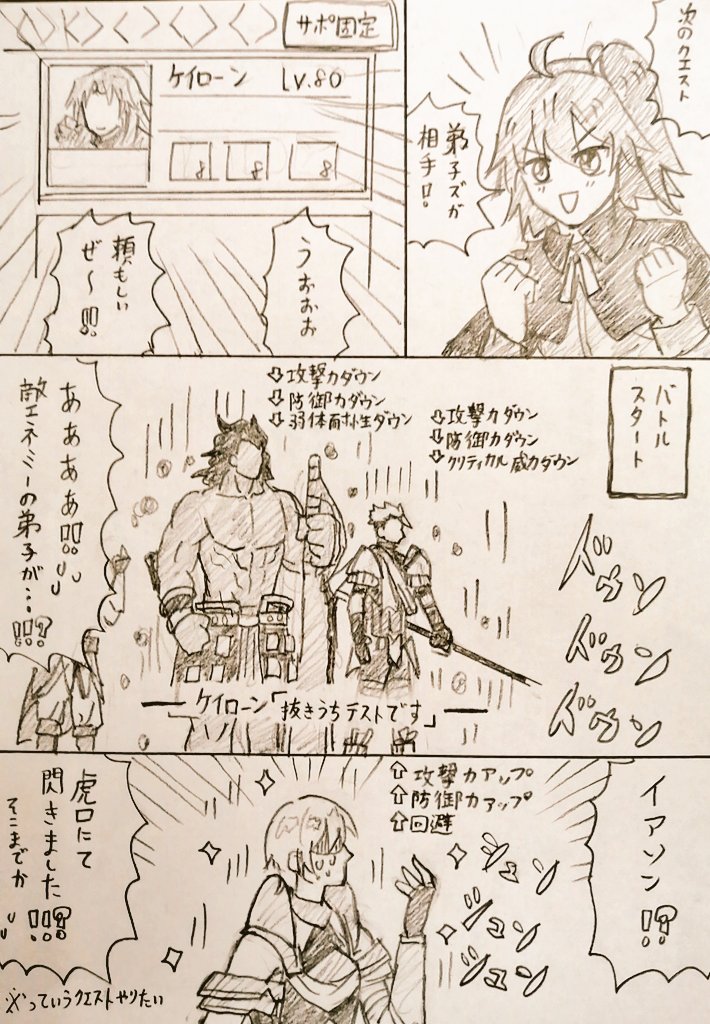 次のクエスト
弟子ズが
相手!
サポ固定
ケイローン Lv.80
8 8 8
うぉぉぉ
頼もしい
ぜ〜!!
バトル
スタート
⇩攻撃力ダウン
⇩防御力ダウン
⇩クリティカル威力ダウン
⇩攻撃力ダウン
⇩防御力ダウン
⇩弱体耐性ダウン
ドゥン
ドゥン
ドゥン
ああああ!!
敵エネミーの弟子が…!!!?
ケイローン「抜きうちテストです」
イアソン!!?
⇧攻撃力アップ
⇧防御力アップ
⇧回避
ジュン
ジュン
ジュン
虎口にて
閃きました!!!?
そこまでか
※っていうクエストやりたい